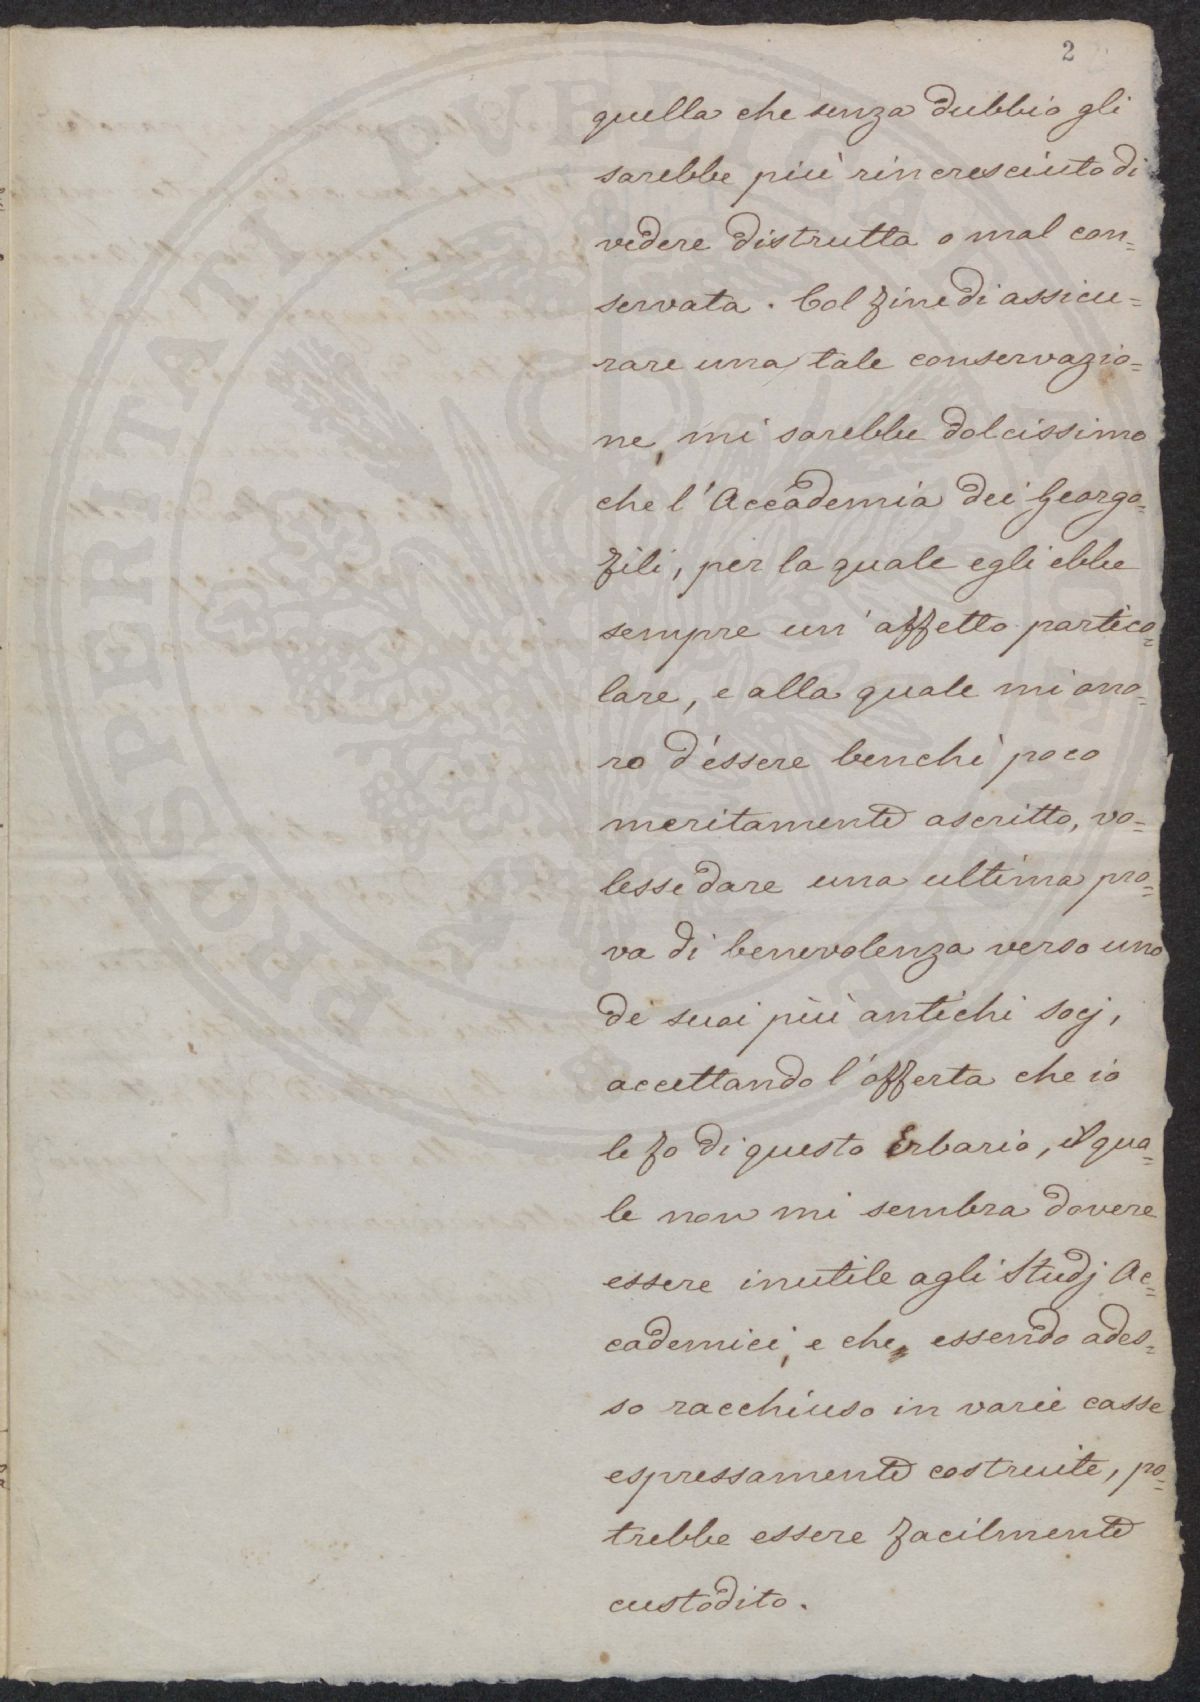 2
quella che senza dubbio gli
sarebbe più rincresciuto di
vedere distrutta o mal con=
servata. Col fine di assicu=
rare una tale conservazio=
ne, mi sarebbe dolcissimo
che l'Accademia dei Georgo=
fili, per la quale egli ebbe
sempre un'affetto partico=
lare, e alla quale mi ono=
ro d'essere benchè poco
meritamente ascritto, vo=
lesse dare una ultima pro=
va di benevolenza verso uno
de' suoi più antichi socj,
accettando l'offerta che io
le fo di questo Erbario, il qua=
le non mi sembra dovere
essere inutile agli Studj Ac=
cademici, e che, essendo ades=
so racchiuso in varie casse
espressamente costruite, po=
trebbe essere facilmente
custodito.
PROSPERITATI PUBLICAE AUGENDAE